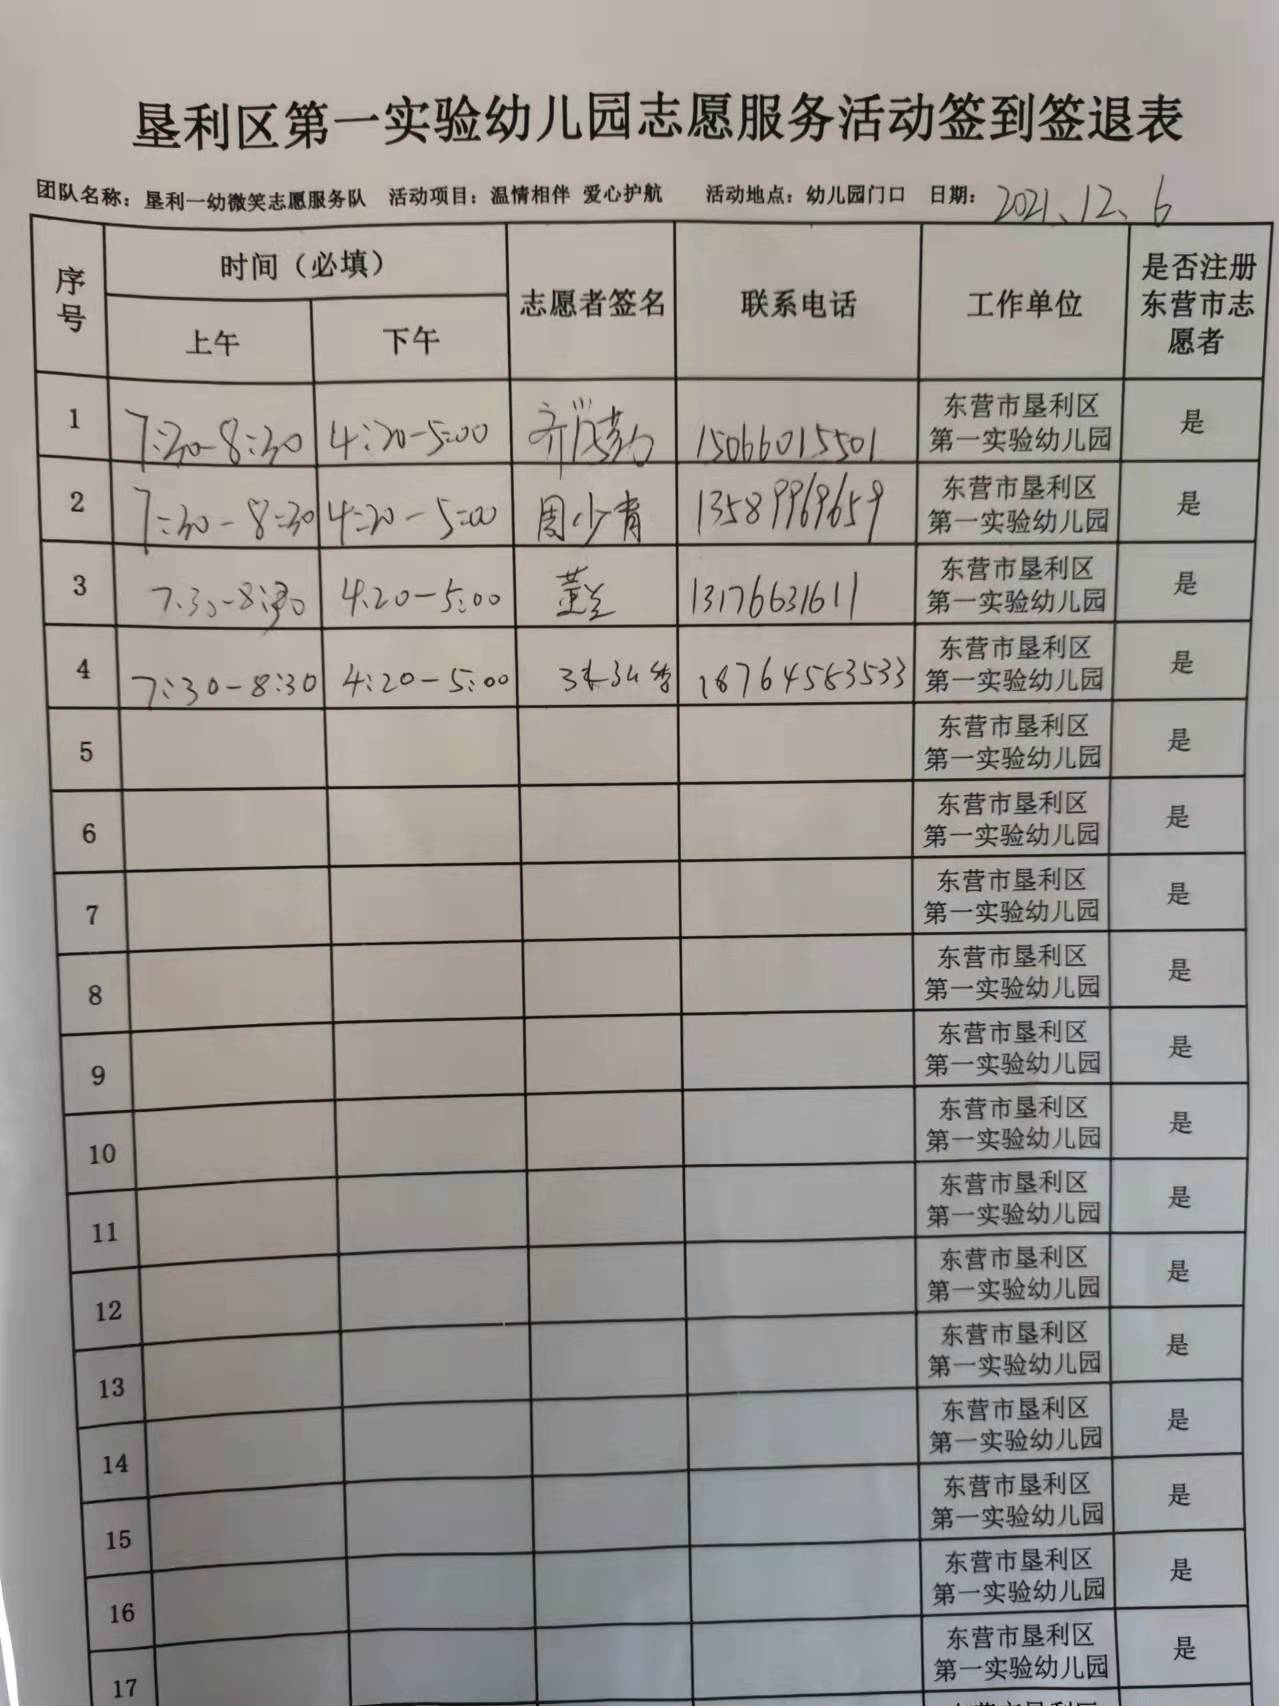 垦利区第一实验幼儿园志愿服务活动签到签退表
团队名称：垦利一幼微笑志愿服务队 活动项目：温情相伴 爱心护航 活动地点：幼儿园门口 日期：2021、12、6
序号 时间（必填） 志愿者签名 联系电话 工作单位 是否注册东营市志愿者
上午 下午
1 7:30-8:30 4:20-5:00 15066015501 东营市垦利区第一实验幼儿园 是
2 7:30-8:30 4:20-5:00 周少青 13589969659 东营市垦利区第一实验幼儿园 是
3 7:30-8:30 4:20-5:00 13176631611 东营市垦利区第一实验幼儿园 是
4 7:30-8:30 4:20-5:00 18764583533 东营市垦利区第一实验幼儿园 是
5 东营市垦利区第一实验幼儿园 是
6 东营市垦利区第一实验幼儿园 是
7 东营市垦利区第一实验幼儿园 是
8 东营市垦利区第一实验幼儿园 是
9 东营市垦利区第一实验幼儿园 是
10 东营市垦利区第一实验幼儿园 是
11 东营市垦利区第一实验幼儿园 是
12 东营市垦利区第一实验幼儿园 是
13 东营市垦利区第一实验幼儿园 是
14 东营市垦利区第一实验幼儿园 是
15 东营市垦利区第一实验幼儿园 是
16 东营市垦利区第一实验幼儿园 是
17 东营市垦利区第一实验幼儿园 是